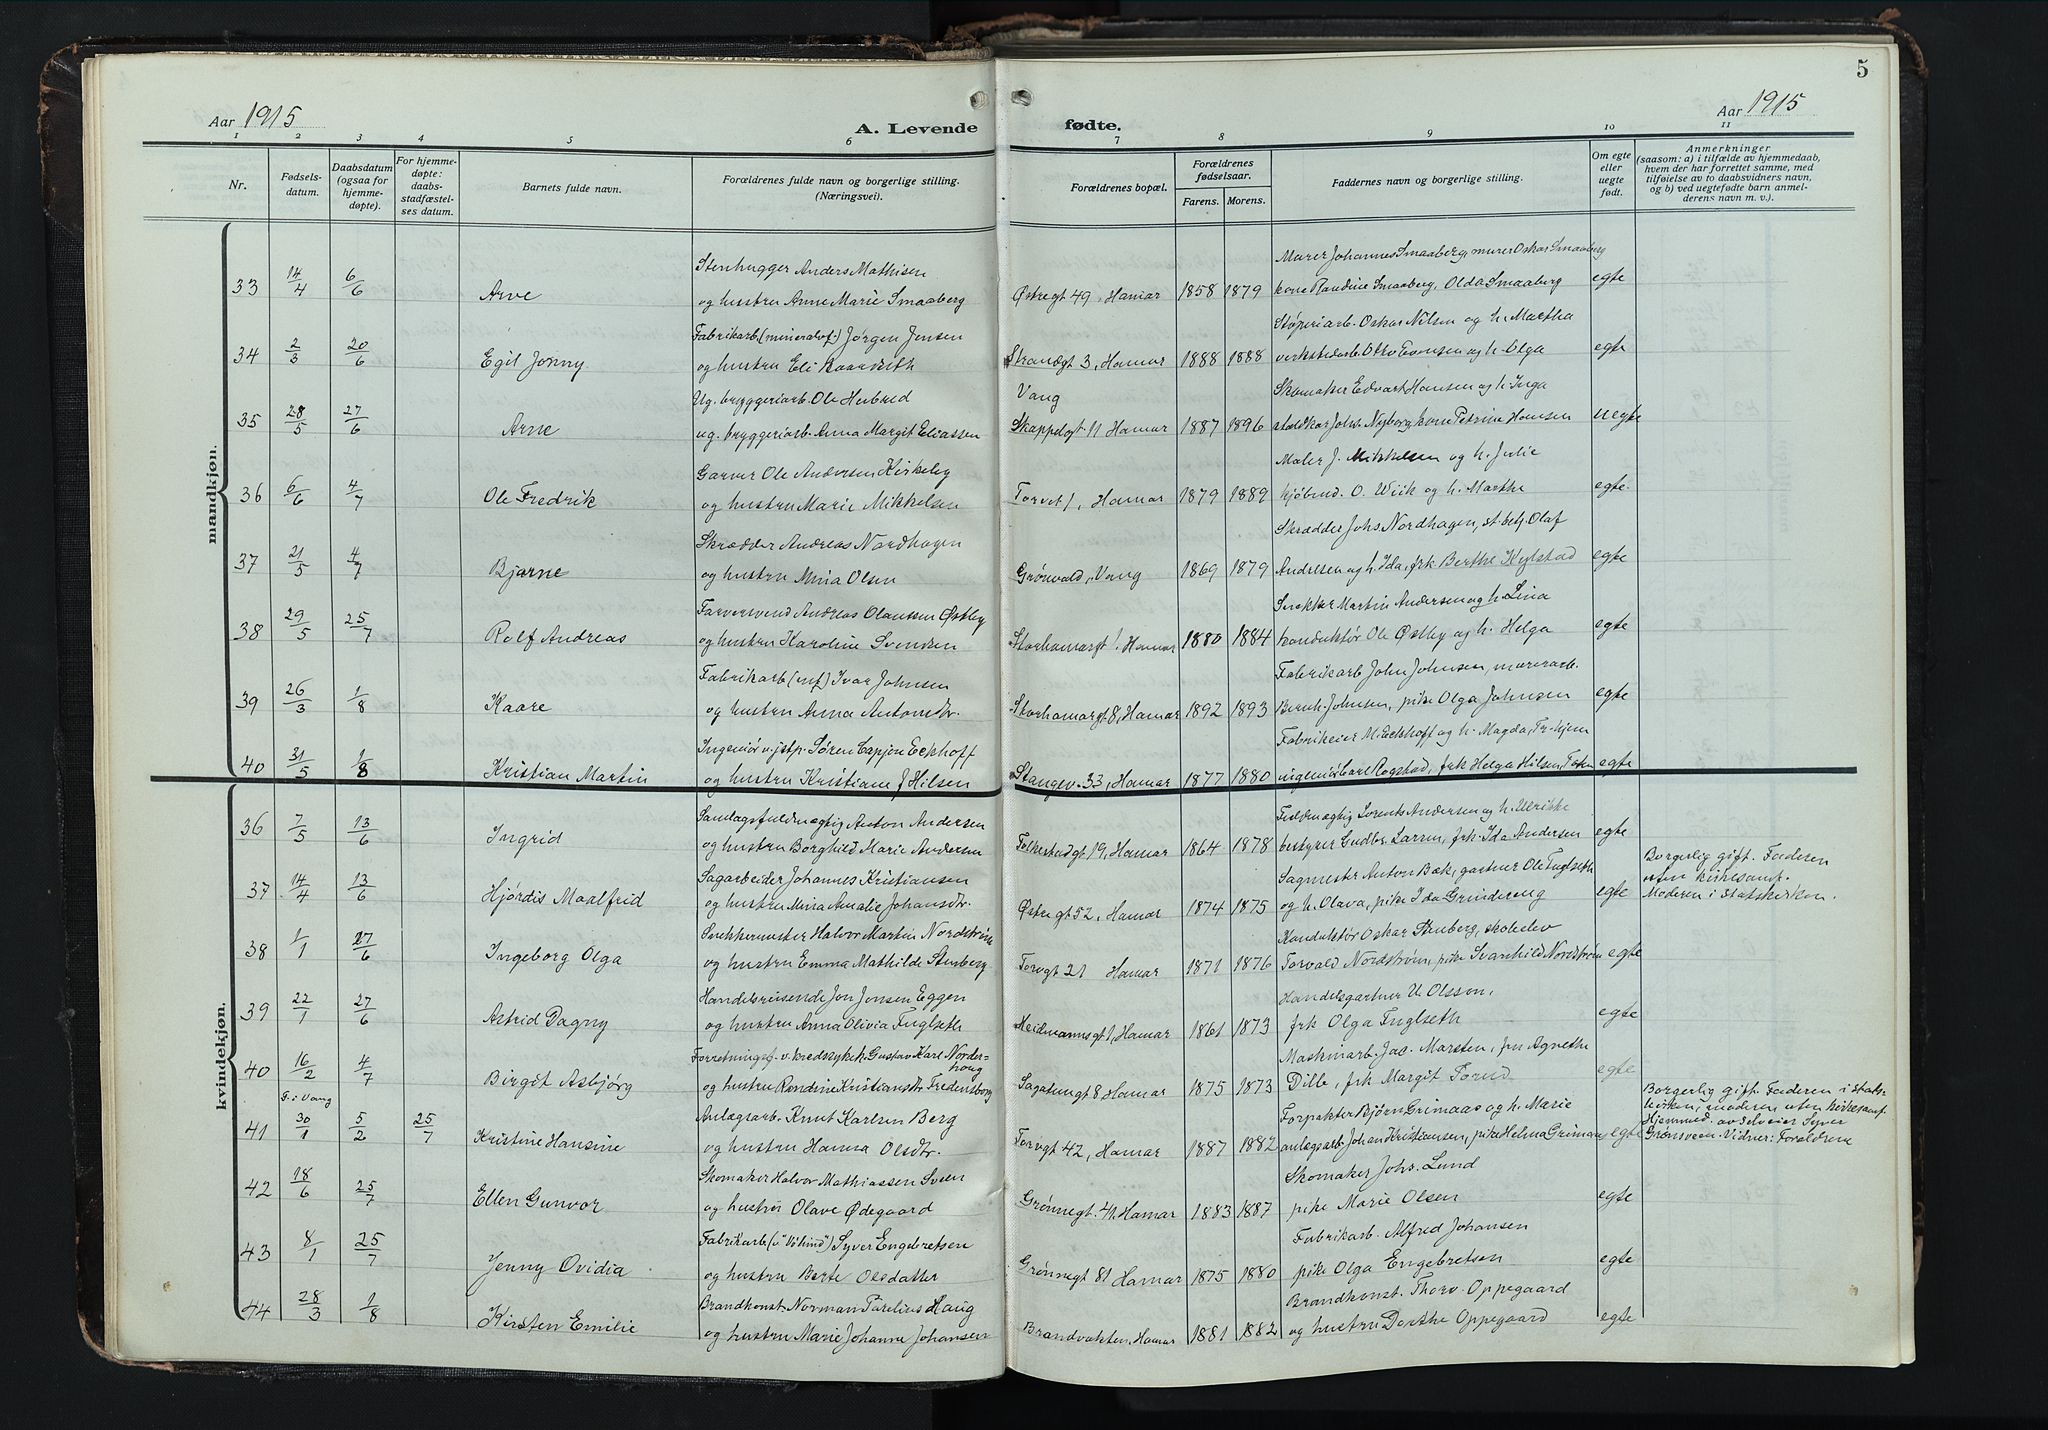 5
Aar 1915
A. Levende fødte.
Aar 1915
1 2 3 4 5 6 7 8 9 10 11
Nr.
Fødsels-
datum.
Daabsdatum
(ogsaa for
hjemme-
døpte).
For hjemme-
døpte:
daabs-
stadfæstel-
ses datum.
Barnets fulde navn.
Forældrenes fulde navn og borgerlige stilling.
(Næringsvei).
Forældrenes bopæl.
Forældrenes
fødselsaar.
Farens. Morens.
Faddernes navn og borgerlige stilling.
Om egte
eller
uegte
født.
Anmerkninger
(saasom: a) i tilfælde av hjemmedaab,
hvem der har forrettet samme, med
tilføielse av to daabsvidners navn,
og b) ved uegtefødte barn anmel-
derens navn m. v.).
mandkjøn.
Stenhugger Anders Mathisen Murer Johannes Smaaberg, murer Oskar Smaaberg
33 14/4 6/6 Arve og hustru Anne Marie Smaaberg Østregt 49, Hamar 1858 1879 kone Randine Smaaberg, Olda Smaaberg egte
Fabrikarb. (mineralvf.) Jørgen Jensen Støperiarb. Oskar Nilsen og h. Martha
34 2/3 20/6 Egil Jonny og hustru Eli Strandgt 3, Hamar 1888 1888 verkstedarb. Otto Evensen og h. Olga egte
Ug. bryggeriarb. Ole Vang Skomaker Edvart Hansen og h. Inga
35 28/5 27/6 Arne ug. bryggeriarb. Anna Margit Eliassen Skappelgt 11 Hamar 1887 1896 staldkar Johs. Nyborg, kone Petrine Hansen uegte
Garver Ole Andersen Kirkeby Maler J. Mikkelsen og h. Julie
36 6/6 4/7 Ole Fredrik og hustru Marie Mikkelsen Torvet 1, Hamar 1879 1889 kjøbmd. O. Wiik og h. Marthe egte.
Skrædder Andreas Nordhagen Skrædder Johs Nordhagen, st. betj. Olaf
37 21/5 4/7 Bjarne og hustru Mina Olsen Grønvold, Vang 1869 1879 Andresen og h. Ida, frk Berthe Kylstad egte
Farversvend Andreas Olaussen Østby Snekker Martin Andersen og h. Lina
38 29/5 25/7 Rolf Andreas og hustru Karoline Svendsen Storhamargt 1 Hamar 1880 1884 konduktør Ole Østby og h. Helga egte
Fabrikarb (mf) Ivar Johnsen Fabrikarb John Johnsen, murerarb.
39 26/3 1/8 Kaare og hustru Anna Antonsdtr. Storhamargt 8, Hamar 1892 1893 Bernh. Johnsen, pike Olga Johnsen egte
Ingeniør v. jstp. Søren Cappon Eckhoff Fabrikeier M. Eckhoff og h. Magda, Tr.hjem
40 31/5 1/8 Kristian Martin og hustru Kristiane J Hilsen Stangev. 33, Hamar 1877 1880 ingeniør Carl Rogstad, frk Helga Hilsen, egte
kvindekjøn.
Samlagsfuldmægtig Anton Andersen Fuldmægtig Lorents Andersen og h. Ulrikke
36 7/5 13/6 Ingrid og hustru Borghild Marie Andersen Folkestadgt 19, Hamar 1864 1878 bestyrer Gudbr. Larsen, frk. Ida Andersen egte
Sagarbeider Johannes Kristiansen Sagmester Anton Bæk, gartner Ole Fuglseth Borgerlig gift. Faderen
uten kirkesamf.
37 14/4 13/6 Hjørdis Maalfrid og hustru Mina Amalie Johansdtr. Østregt 52, Hamar 1874 1875 og h. Olava, pike Ida Grindereng egte Moderen i Statskirken.
Snekkermester Halvor Martin Nordstrøm Konduktør Oskar Stenberg, skoleelev
38 1/1 27/6 Ingeborg Olga og hustru Emma Mathilde Stenberg Torvgt 21 Hamar 1871 1876 Torvald Nordstrøm, pike Svanhild Nordstrøm egte
Handelsreisende Jon Jensen Eggen Handelsgartner U. Olsson,
39 22/1 27/6 Astrid Dagny og hustru Anna Olivia Fuglseth Heidmannsgt 1, Hamar 1861 1873 frk Olga Fuglseth egte
Forretningsf. v. kredsykek. Gustav Karl Norder-
houg Maskinarb. Jac. Marsten, fru Agnethe
40 16/2 4/7 Birgit Asbjörg og hustru Rondine Kristiansdtr Fredensborg Sagatungt 8 Hamar 1875 1873 Dille, frk Margit Torud egte
F. i Vang Anlægsarb. Knut Karlsen Berg Forpakter Bjørn Grimaas og h. Marie Borgerlig gift. Faderen i stats-
kirken, moderen uten kirkesamf.
Hjemmed. av selveier Syver
41 30/1 5/2 25/7 Kristine Hansine og hustru Hanna Olsdtr. Torvgt 42, Hamar 1887 1882 anlægsarb. Johan Kristiansen, pike Helma Grimaas egte Grønsveen. Vidner: Forældrene
Skomaker Halvor Mathiassen Sveen Skomaker Johs. Lund
42 18/6 25/7 Ellen Gunvor og hustru Olave Ødegaard Grønnegt. 41, Hamar 1883 1887 pike Marie Olsen egte
Fabrikarb (v. "Vöhind") Syver Engebretsen Fabrikarb. Alfred Johansen
43 8/1 25/7 Jenny Ovidia og hustru Berte Olsdatter Grønnegt 81 Hamar 1875 1880 pike Olga Engebretsen egte
Brandkonst. Norman Parelius Haug Brandkonst. Thorv Oppegaard
44 28/3 1/8 Kirsten Emilie og hustru Marie Johanne Johansen Brandvakten, Hamar 1881 1882 og hustru Dorthe Oppegaard egte